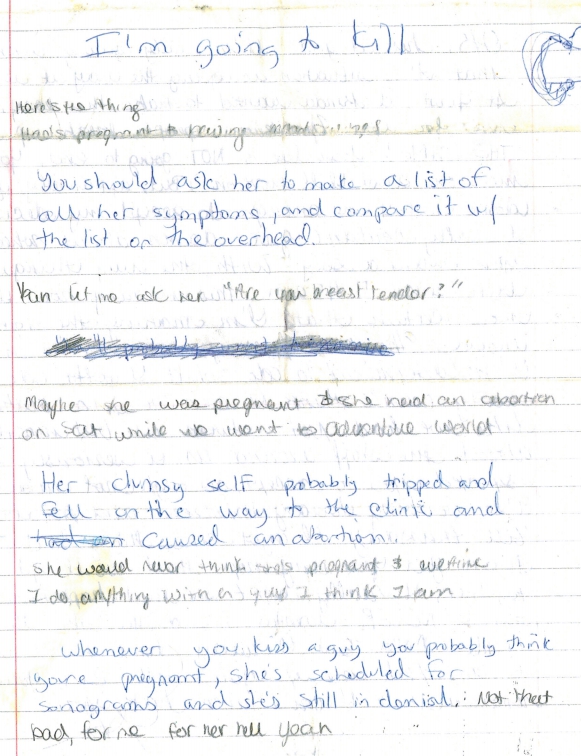 I'm going to kill
Here's the thing
Hao's pregnant & having
You should ask her to make a list of
all her symptoms, and compare it w/
the list on the overhead.
Yean let me ask her "Are you breast tender?"
Maybe she was pregnant & she had an abortion
on sat while we went to advantive world
Her clumsy self probably tripped and
fell on the way to the clinic and
had an caused an abortion.
She would never think she's pregnant & evertime
I do anything with a guy I think I am
Whenever you kiss a guy you probably think
you're pregnant, she's scheduled for
sonograms and she's still in denial. Not that
bad, for me for her hell yeah